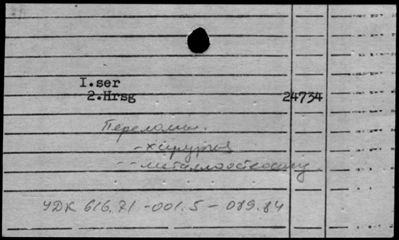 I.ser
2.Hrsg 24734
Переломы.
- хирургия
-- металлоостеосинтез
УДК 616.71-001.5-089.84